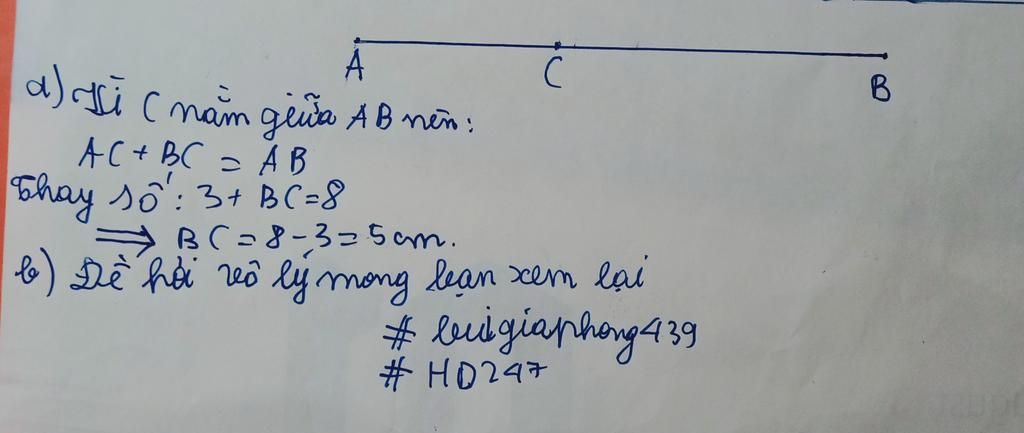 A C B
a) Vì C nằm giữa AB nên:
AC + BC = AB
Thay số: 3 + BC = 8
⟹ BC = 8 - 3 = 5 cm.
b) Đề hơi vô lý mong bạn xem lại
# buigiaphong439
# HD247